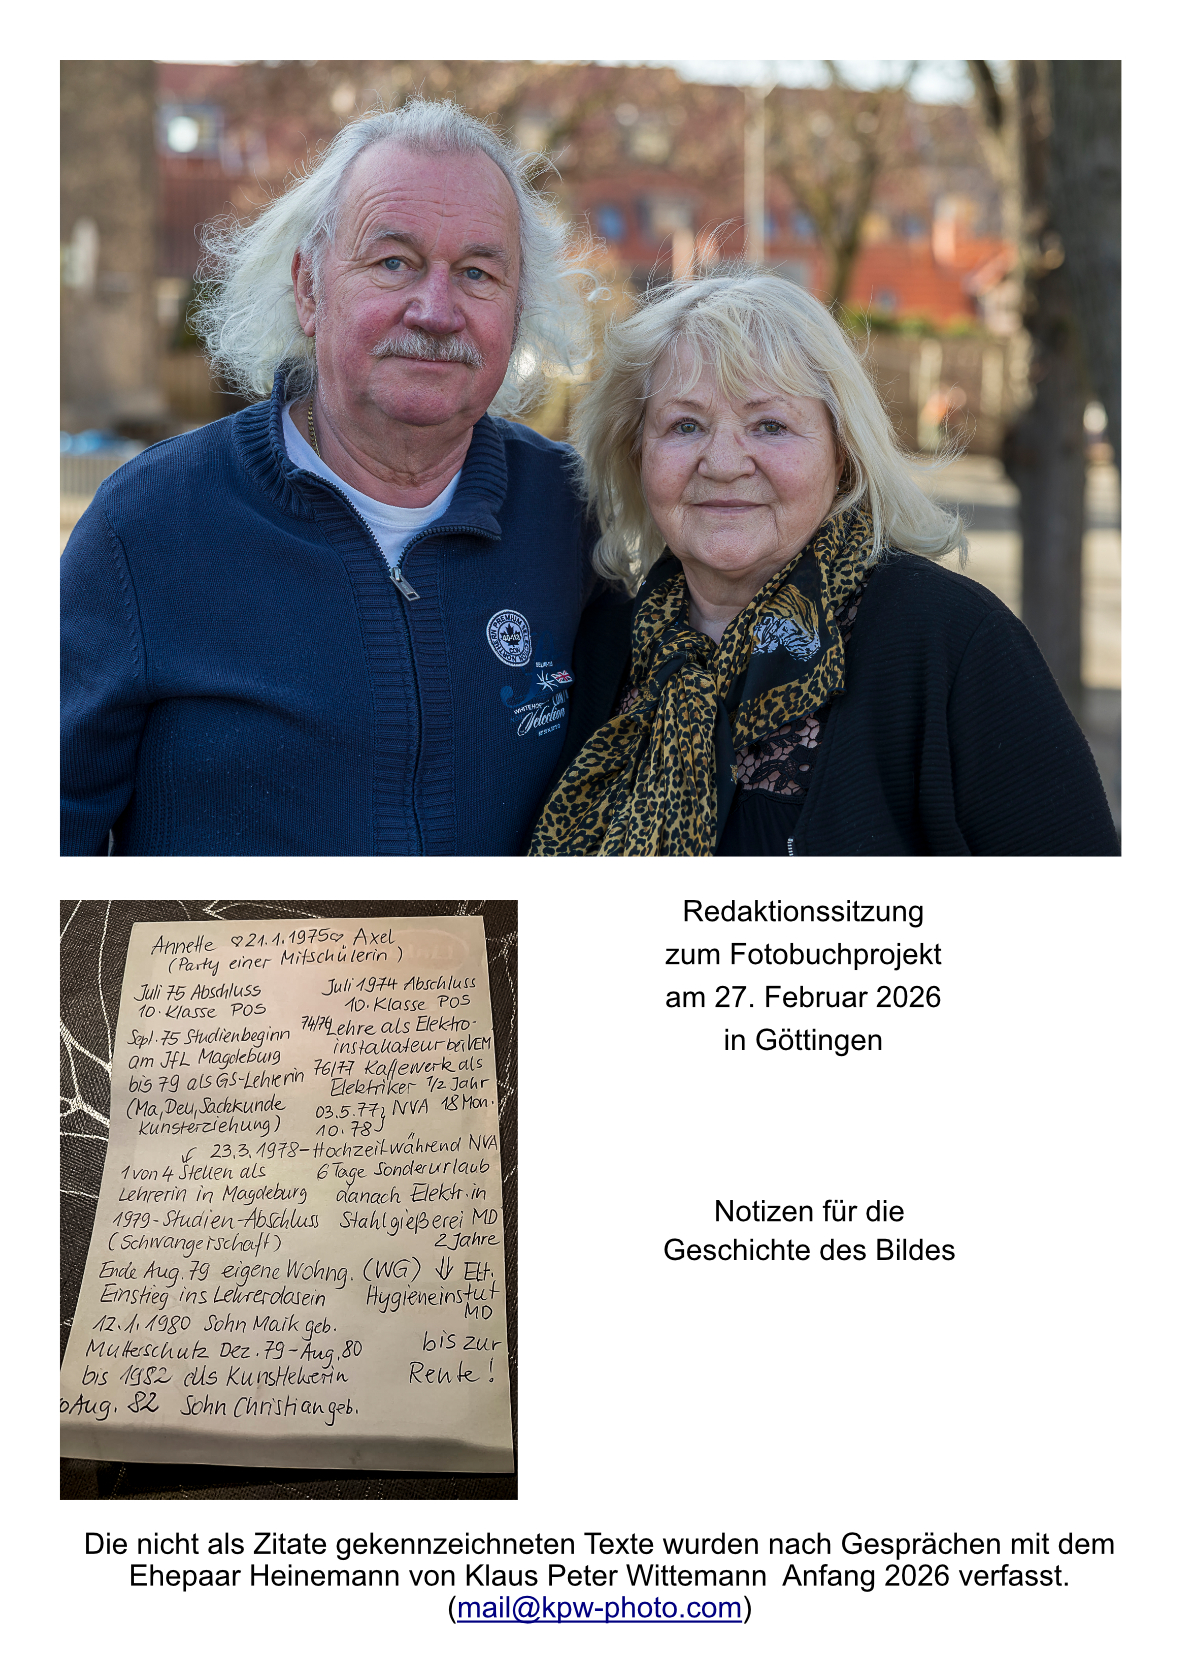 NORTHERN PREMIUM SELECTION
WHITEHORSE
Selection
Annette ♡21.1.1975♡. Axel
(Party einer Mitschülerin)
Juli 75 Abschluss
10. Klasse POS
Juli 1974 Abschluss
10. Klasse POS
Sept. 75 Studienbeginn
am JfL Magdeburg
bis 79 als GS-Lehrerin
(Ma, Deu, Sachkunde
Kunsterziehung)
74/74 Lehre als Elektro-
installateur bei VEM
76/77 Kaffewerk als
Elektriker 1/2 Jahr
03.5.77 } NVA 18 Mon.
10.78
23.3.1978 - Hochzeit während NVA
1 von 4 Stellen als
Lehrerin in Magdeburg
6 Tage Sonderurlaub
danach Elektr. in
1979 - Studien-Abschluss
(Schwangerschaft)
Stahlgießerei MD
2 Jahre
Ende Aug. 79 eigene Wohng. (WG) ⇓ Elt.
Einstieg ins Lehrerdasein
Hygieneinstut
MD
12.1.1980 Sohn Maik geb.
Mutterschutz Dez. 79 - Aug. 80
bis zur
Rente!
bis 1982 als Kunstlehrerin
Aug. 82 Sohn Christian geb.
Redaktionssitzung
zum Fotobuchprojekt
am 27. Februar 2026
in Göttingen
Notizen für die
Geschichte des Bildes
Die nicht als Zitate gekennzeichneten Texte wurden nach Gesprächen mit dem
Ehepaar Heinemann von Klaus Peter Wittemann Anfang 2026 verfasst.
(mail@kpw-photo.com)